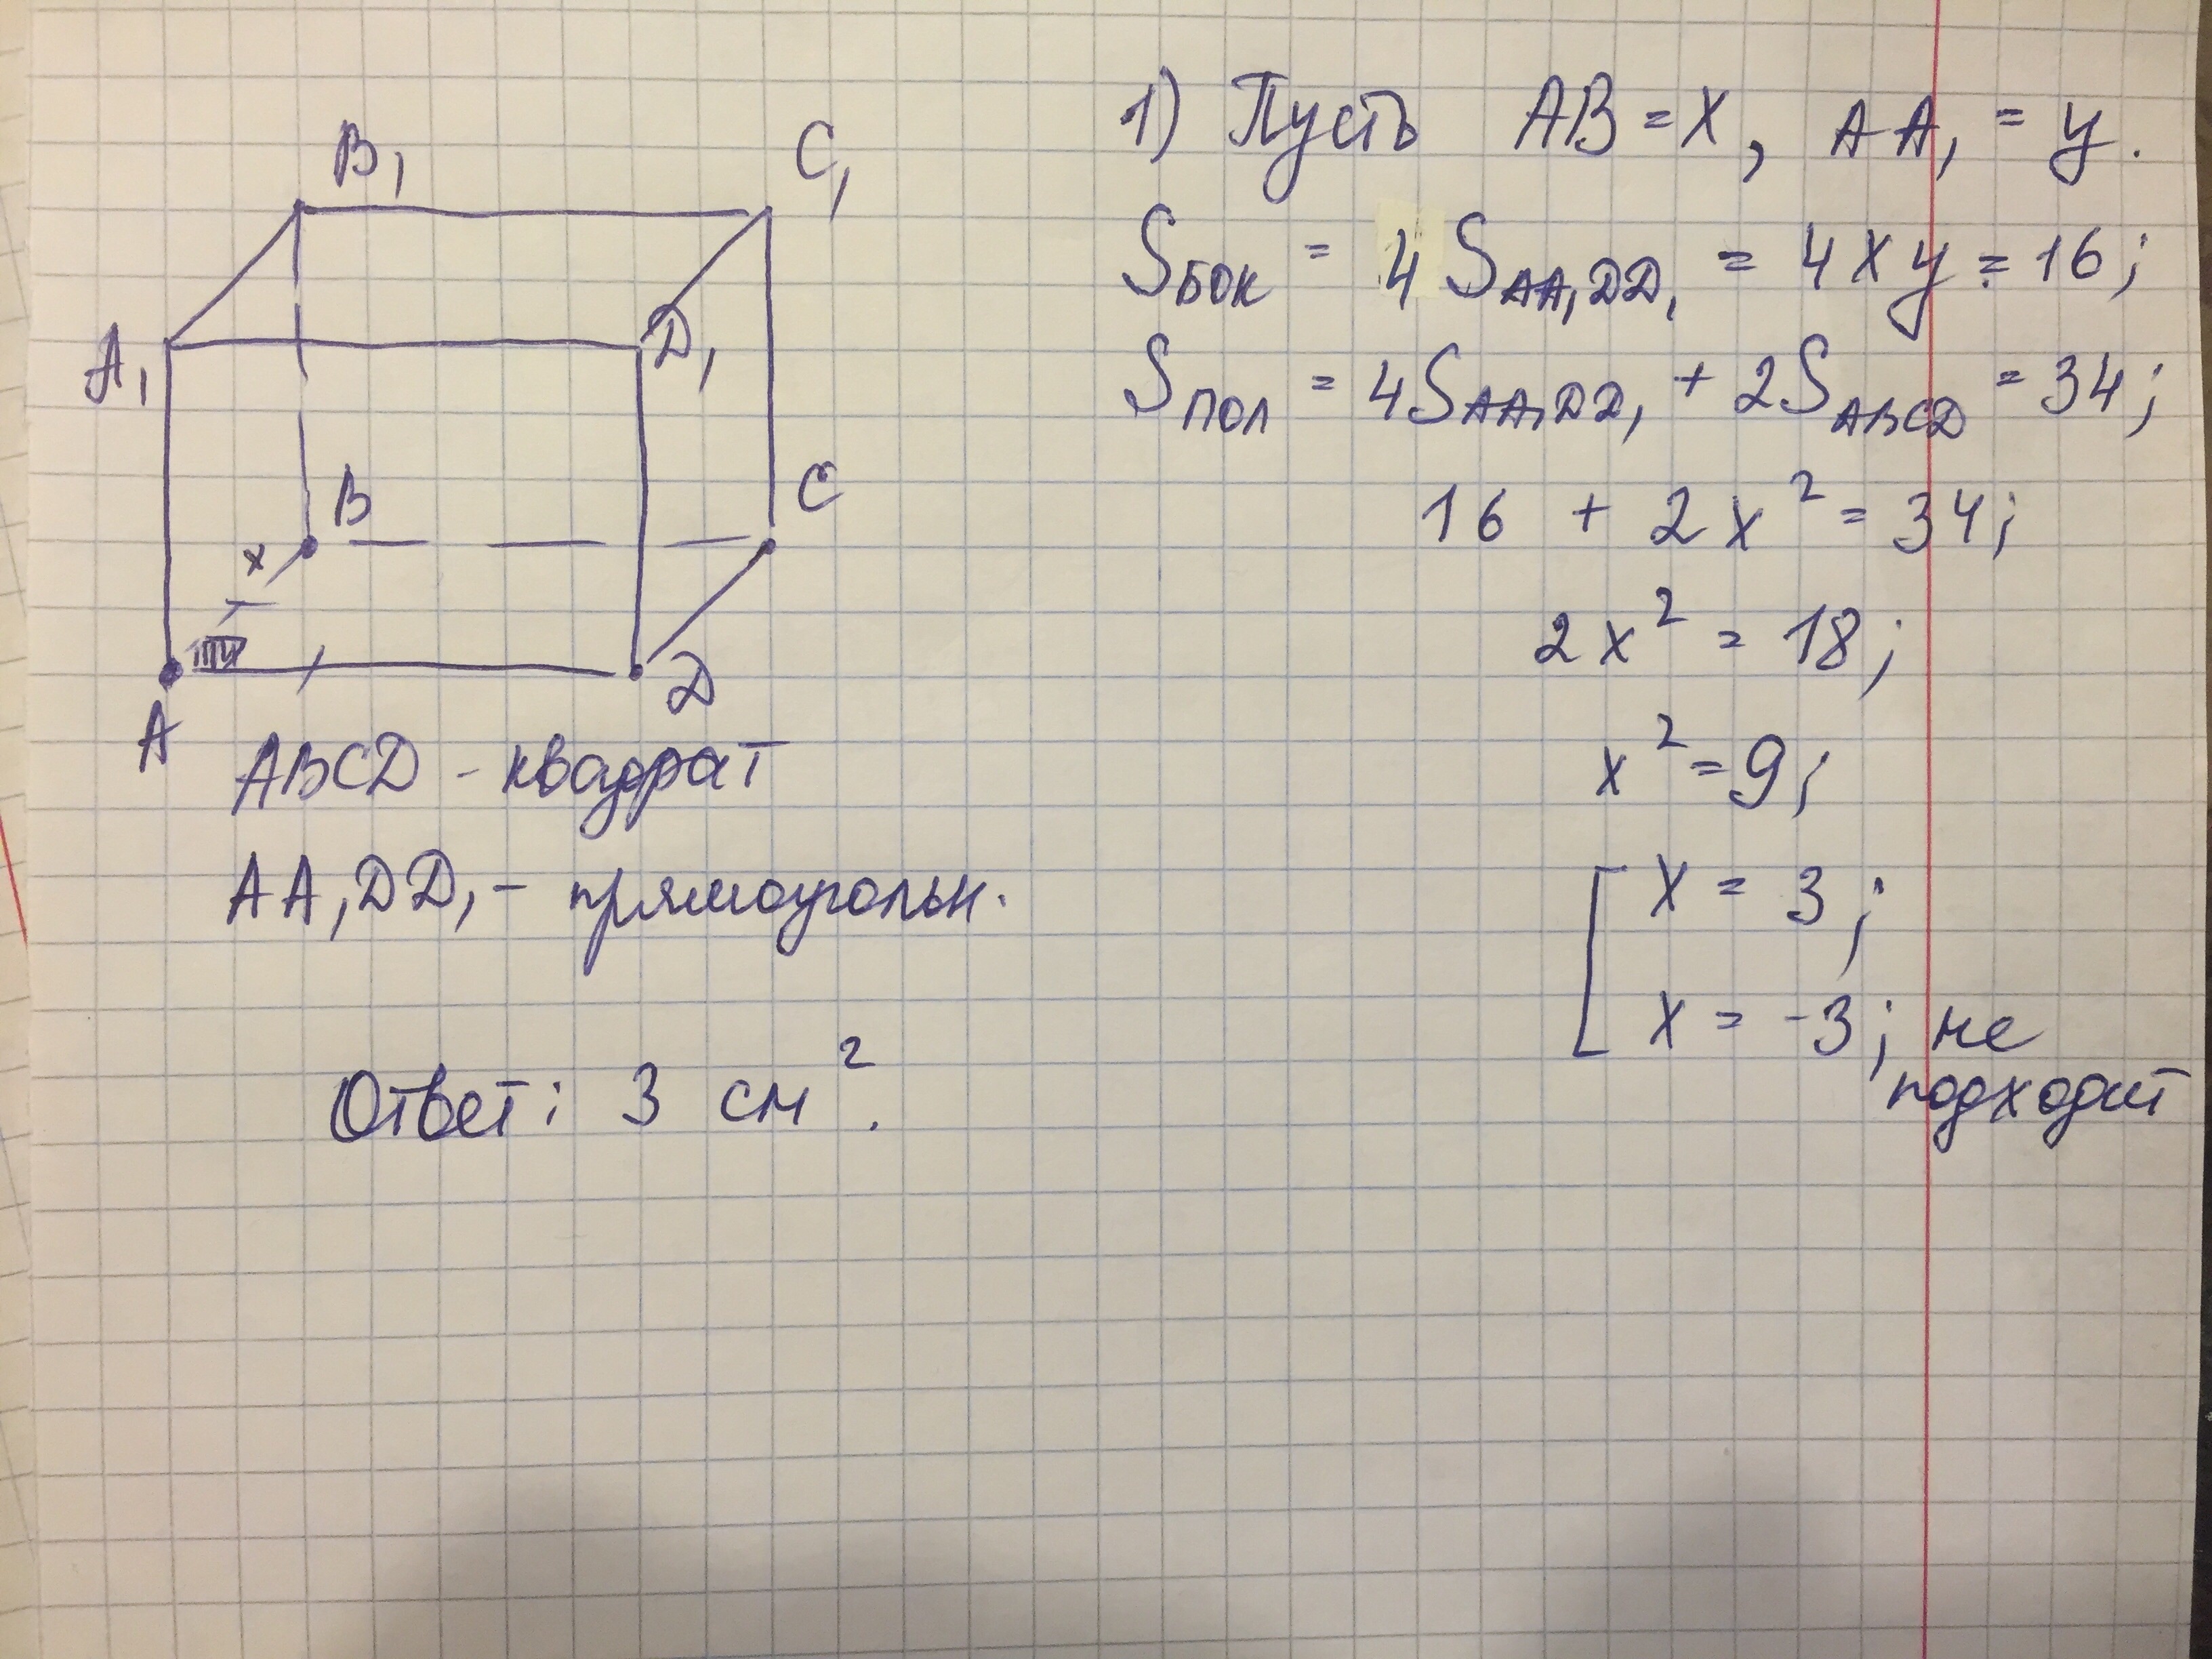 B₁ C₁
A₁ D₁
B C
x
A D
ABCD - квадрат
AA₁DD₁ - прямоугольн.
Ответ: 3 см².
1) Пусть AB = x, AA₁ = y.
Sбок = 4 S_AA₁DD₁ = 4xy = 16;
Sпол = 4S_AA₁DD₁ + 2S_ABCD = 34;
16 + 2x² = 34;
2x² = 18;
x² = 9;
[ x = 3;
x = -3; не
подходит